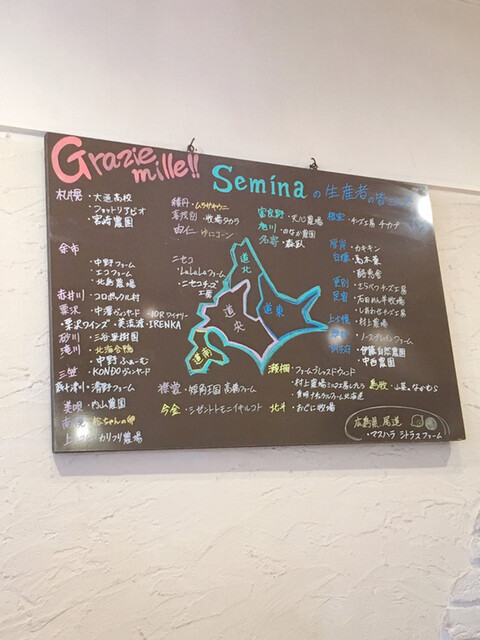 Grazie mille!!
Seminaの生産者の皆
札幌・大通高校
・フャットリアビオ
・宮崎農園
余市
・中野ファーム
・エコファーム
・北島農場
赤井川・コロポックル村
栗沢・中澤ヴィンヤード・10Rワイナリー
・栗沢ワインズ・美流渡・IRENKA
砂川・三谷果樹園
滝川・北海合鴨
・中野ふぁーむ
三笠・KONDOヴィンヤード
新十津川・清野ファーム
美唄・内山農園
ちゃんの卵
・カリフリ農場
積丹・ムラサキウニ
喜茂別・牧場タカラ
由仁・ゆにコーン
ニセコ
・LaLaLaファーム
・ニセコチーズ工房
富良野・天心農場
旭川・のなか農園
名寄・森臥
根室・チーズ工房チカプ
厚岸・カキキン
白糠・高木薬
・酪恵舎
更別・さらべつチーズ工房
足寄・石田めん羊牧場
・しあわせチーズ工房
上士幌・村上農場
・ノースプレインファーム
・伊藤自然農園
・中台農園
道北
道東
道央
道南
瀬棚・ファームブレスドウンド
・村上農場
・青木ナチュラルファーム北海道
島牧・山菜。なかむら
檜山・短角王国 高橋ファーム
今金・シゼントトモニイキルコト
北斗・おぐに牧場
広島県 尾道
・マスハラ シトラスファーム